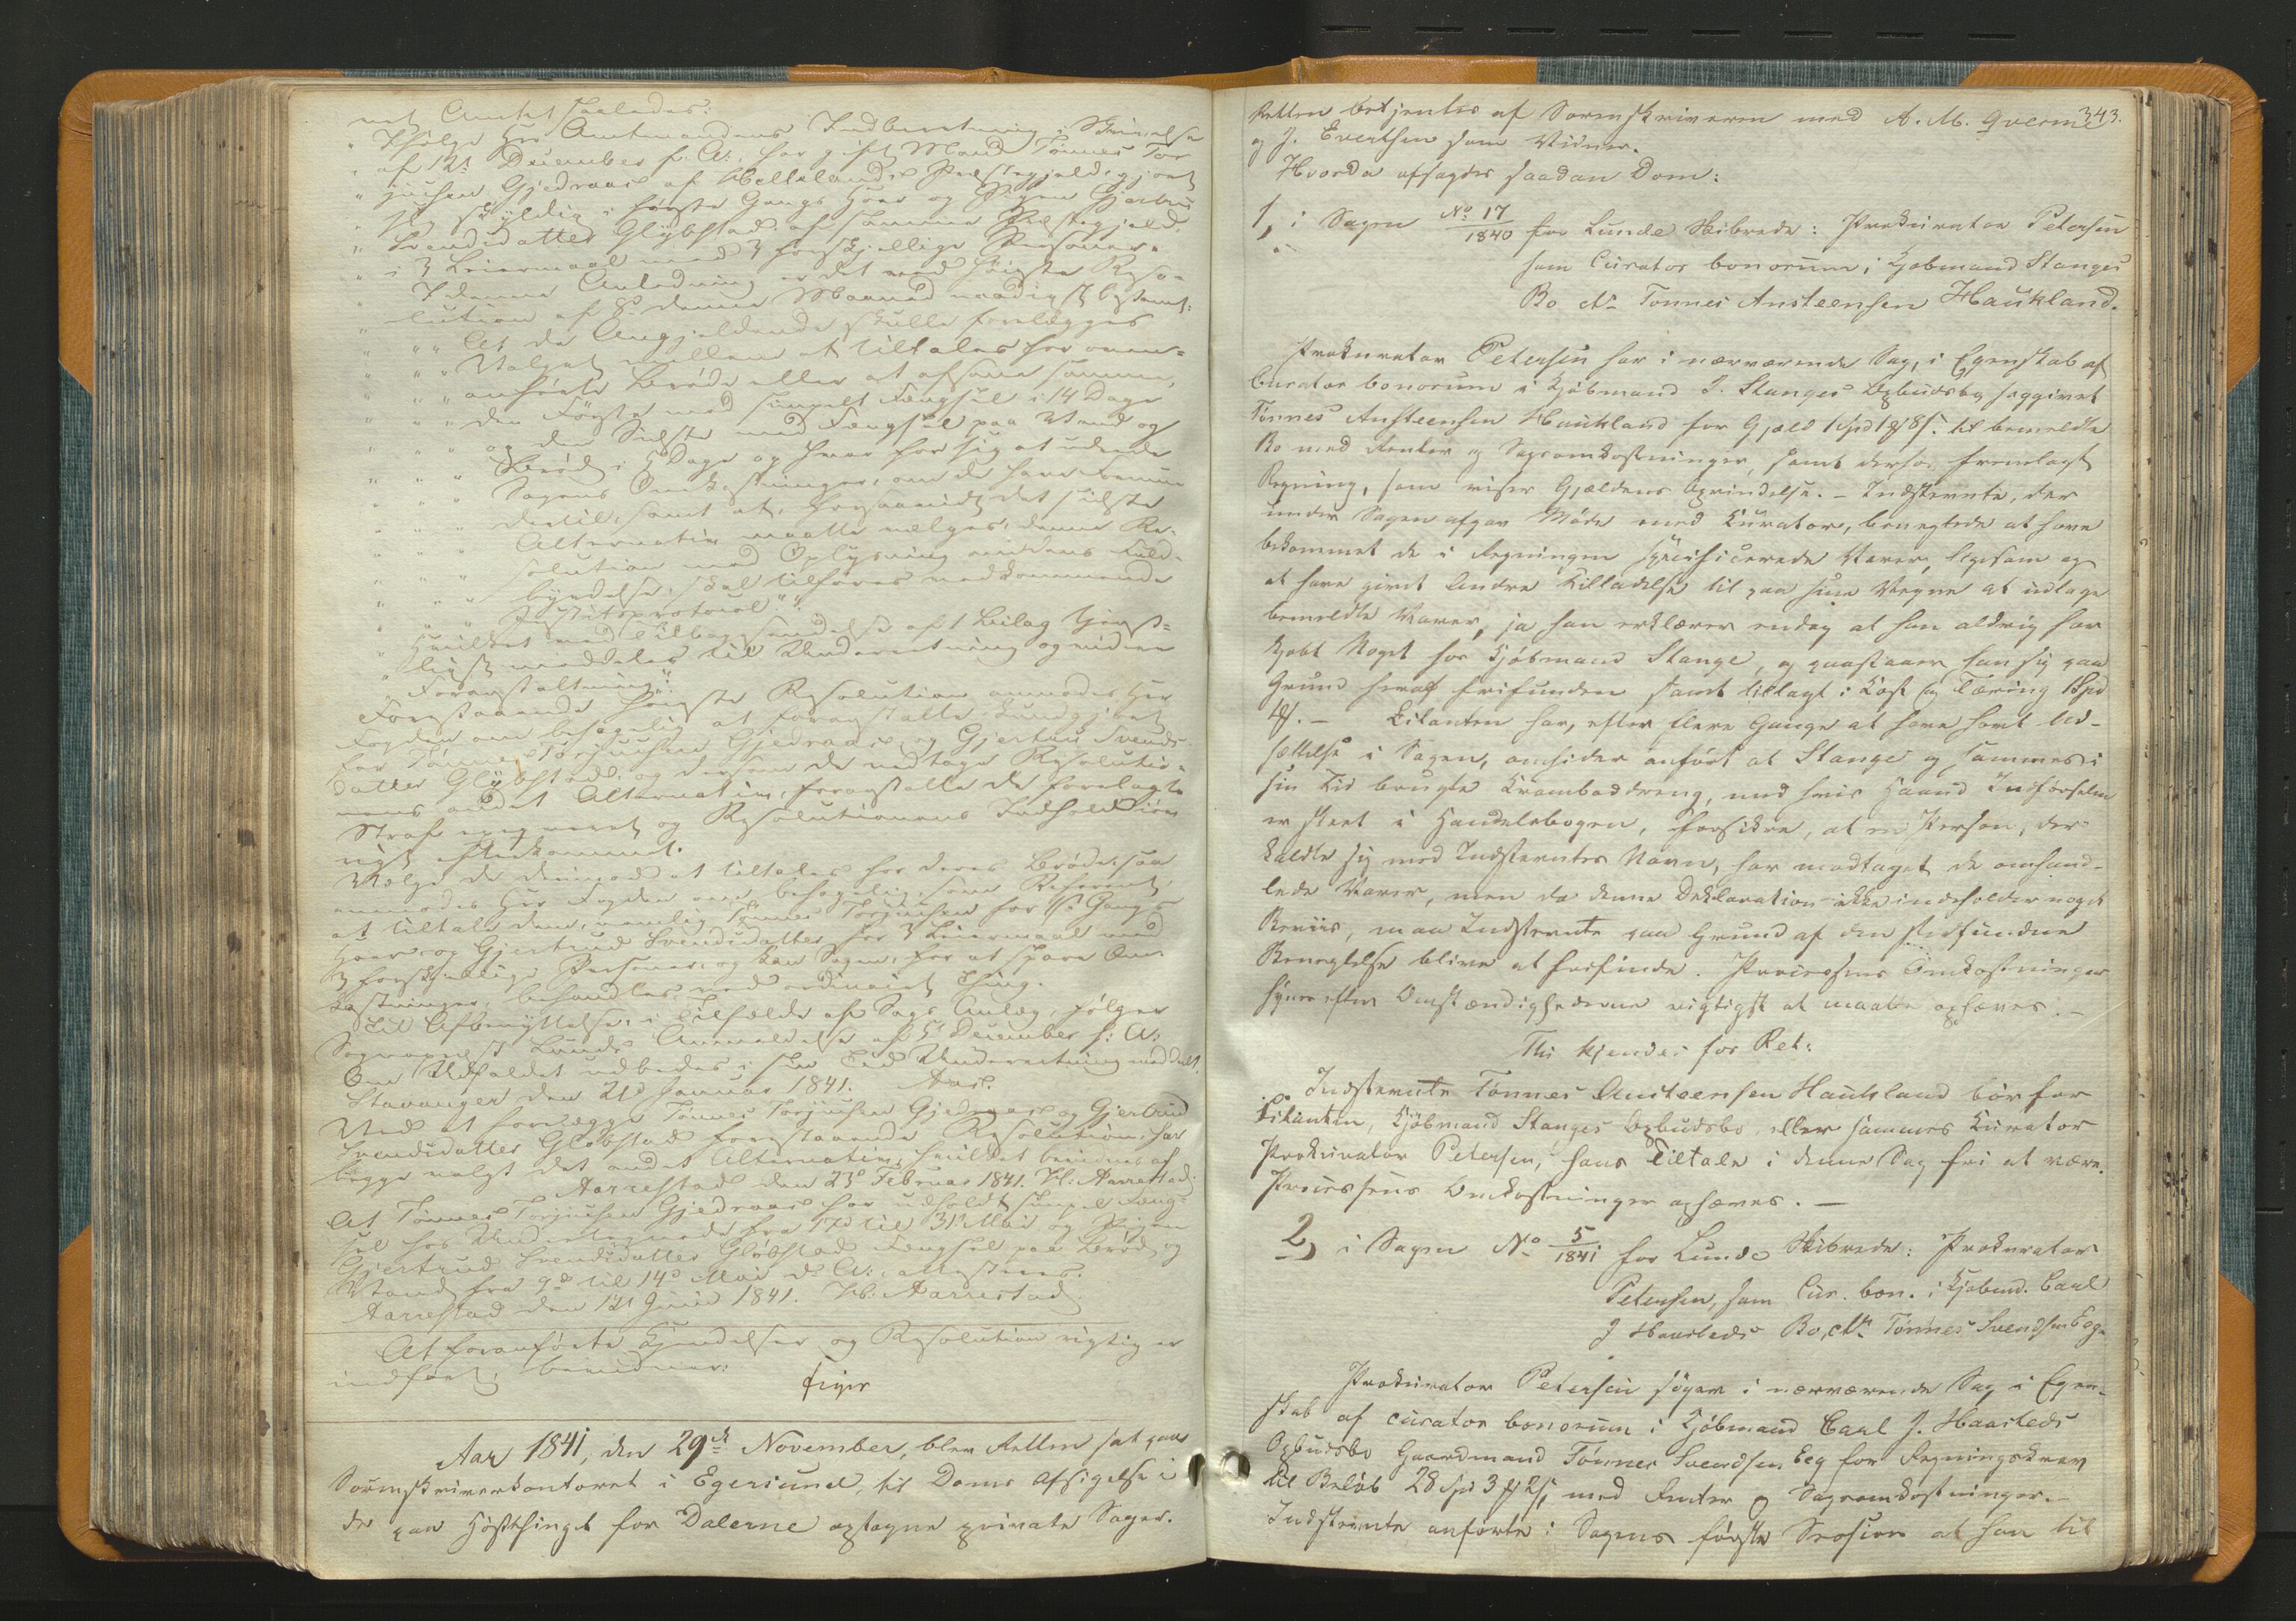 net Amtet saaledes:
"Ifølge Hr Amtmandens Indberetning i Skrivelse
"af 12te December f. A. har gift Mand Tønnes Tor
"juusen Gjedraas af Hellelands Præstegjeld, gjort
"sig skyldig i første Gangs Hoer og Pigen Gjertrud
"Svendsdatter Glybstad af samme Præstegjeld,
"i 3 Leiermaal med 3 forskjellige Personer.
"I denne Anledning er det ved høieste Reso-
"lution af 8de denne Maaned naadigst bestemt:
" "At de Angjeldende skulle forelægges
" " Valget mellem at tiltales for oven-
" " anførte Brøde eller at afsone samme,
" " den Første med simpelt Fængsel i 14 Dage
" " og den Sidste med Fængsel paa Vand og
" " Brød i 5 Dage og hver for sig at udrede
" " Sagens Omkostninger, om de have Evne
" " dertil, samt at, forsaavidt det sidste
" " Alternativ maatte vælges, denne Re-
" " solution med Oplysning om dens Fuld-
" " byrdelse, skal tilføres vedkommende
" " Justitsprotocol."
"Hvilket med Tilbagesendelse af 1 Bilag tjenst-
"ligst meddeles til Underretning og videre
"Foranstaltning."
Forestaaende høieste Resolution anmodes Hr
Fogden om behageligt at foranstalte kundgjort
for Tønnes Torjuusen Gjedraas og Gjertrud Svends-
datter Glybstad, og dersom de vedtage Resolutio-
nens andet Alternativ, foranstalte de forelagte
Straffe exeqveret og Resolutionens Indhold iøv-
rigt efterkommet.
Vælge de derimod at tiltales for deres Brøde, saa
anmodes Hr Fogden om behageligt, som Referent,
at tiltale dem, nemlig Tønnes Torjuusen for 1ste Gangs
Hoer og Gjertrud Svendsdatter for 3 Leiermaal med
3 forskjellige Personer, og kan Sagen, for at spare Om-
kostninger, behandles ved ordinairt Thing.
Til Afbenyttelse, i Tilfælde af Sags Anlæg, følger
Sognepræst Lunds Anmeldelse af 5te December f: A:
Om Udfaldet udbedes i sin Tid Underretning meddeelt.
Stavanger den 21de Januar 1841. Aas.
Ved at forelægge Tønnes Torjuusen Gjedraas og Gjertrud
Svendsdatter Gløbstad forestaaende Resolution, har
begge valgt det andet Alternativ, hvilket bevidnes af
Aarrestad den 23de Februar 1841. H: Aarrestad.
At Tønnes Torjuusen Gjedraas har udholdt simpel Fæng-
sel hos Undertegnede fra 17de til 31te Mai og Pigen
Gjertrud Svendsdatter Gløbstad Fængsel paa Brød og
Vand fra 9de til 14de Mai d: A:, attesteres.
Aarrestad den 12te Juni 1841. H: Aarrestad.
At foranførte Kjendelser og Resolution rigtig er
indført, bevidner:
Feyer
Aar 1841, den 29de November, blev Retten sat paa
Sorenskriverkontoret i Egersund, til Doms Afsigelse i
de paa Høstthinget for Dalerne optagne private Sager.
343.
Retten betjentes af Sorenskriveren med A. M. Qverme
og J. Evertsen som Vidner.
Hvorda afsagdes saadan Dom:
1, i Sagen No 17/1840 for Lunde Skibrede: Prokurator Petersen
som Curator bonorum i Kjøbmand Stanges
Bo ctr. Tønnes Ansteensen Haukland.
Prokurator Petersen har i nærværende Sag, i Egenskab af
curator bonorum i Kjøbmand J. Stanges Opbudsbo saggivet
Tønnes Ansteensen Haukland for Gjæld 1 Spd 1 ß 8 s. til bemeldte
Bo med Renter og Sagsomkostninger, samt derfor fremlagt
Regning, som viser Gjældens Oprindelse. – Indstevnte, der
under Sagen afgav Møde med Kurator, benegtede at have
bekommet de i Regningen specificerede Varer, ligesom og
at have givet Andre Tilladelse til paa sine Vegne at udtage
bemeldte Varer, ja han erklærer endog at han aldrig har
kjøbt Noget hos Kjøbmand Stange, og paastaaer han sig paa
Grund heraf frifunden samt tillagt i Kost og Tæring 1 Spd
. – Citanten har, efter flere Gange at have havt Ud-
sættelse i Sagen, omsider anført at Stange og sammes i
sin Tid brugte Krambaddreng, med hvis Haand Indførselen
er skeet i Handelsbogen, forsikre, at en Person, der
kaldte sig med Indstevntes Navn, har modtaget de omhand-
lede Varer, men da denne Deklaration ikke indeholder noget
Beviis, maa Indstevnte paa Grund af den stedfundne
Benegtelse blive at frifinde. Processens Omkostninger
synes efter Omstændighederne rigtigst at maatte ophæves. –
Thi kjendes for Ret:
Indstevnte Tønnes Ansteensen Haukland bør for
Citanten, Kjøbmand Stanges Opbudsbo, eller sammes Kurator
Prokurator Petersen, hans Tiltale i denne Sag fri at være.
Processens Omkostninger ophæves. –
2, i Sagen No 5/1841 for Lunde Skibrede: Prokurator
Petersen, som Cur. bon. i Kjøbmd. Carl
J Haasteds Bo, ctr. Tønnes Svendsen Eeg.
Prokurator Petersen søger i nærværende Sag i Egen-
skab af curator bonorum i Kjøbmand Carl J. Haasteds
Opbudsbo Gaardmand Tønnes Svendsen Eeg for Regningskrav
til Beløb 28 Spd 3 ß 2 s, med Renter og Sagsomkostninger. –
Indstevnte anførte i Sagens første Session at han til